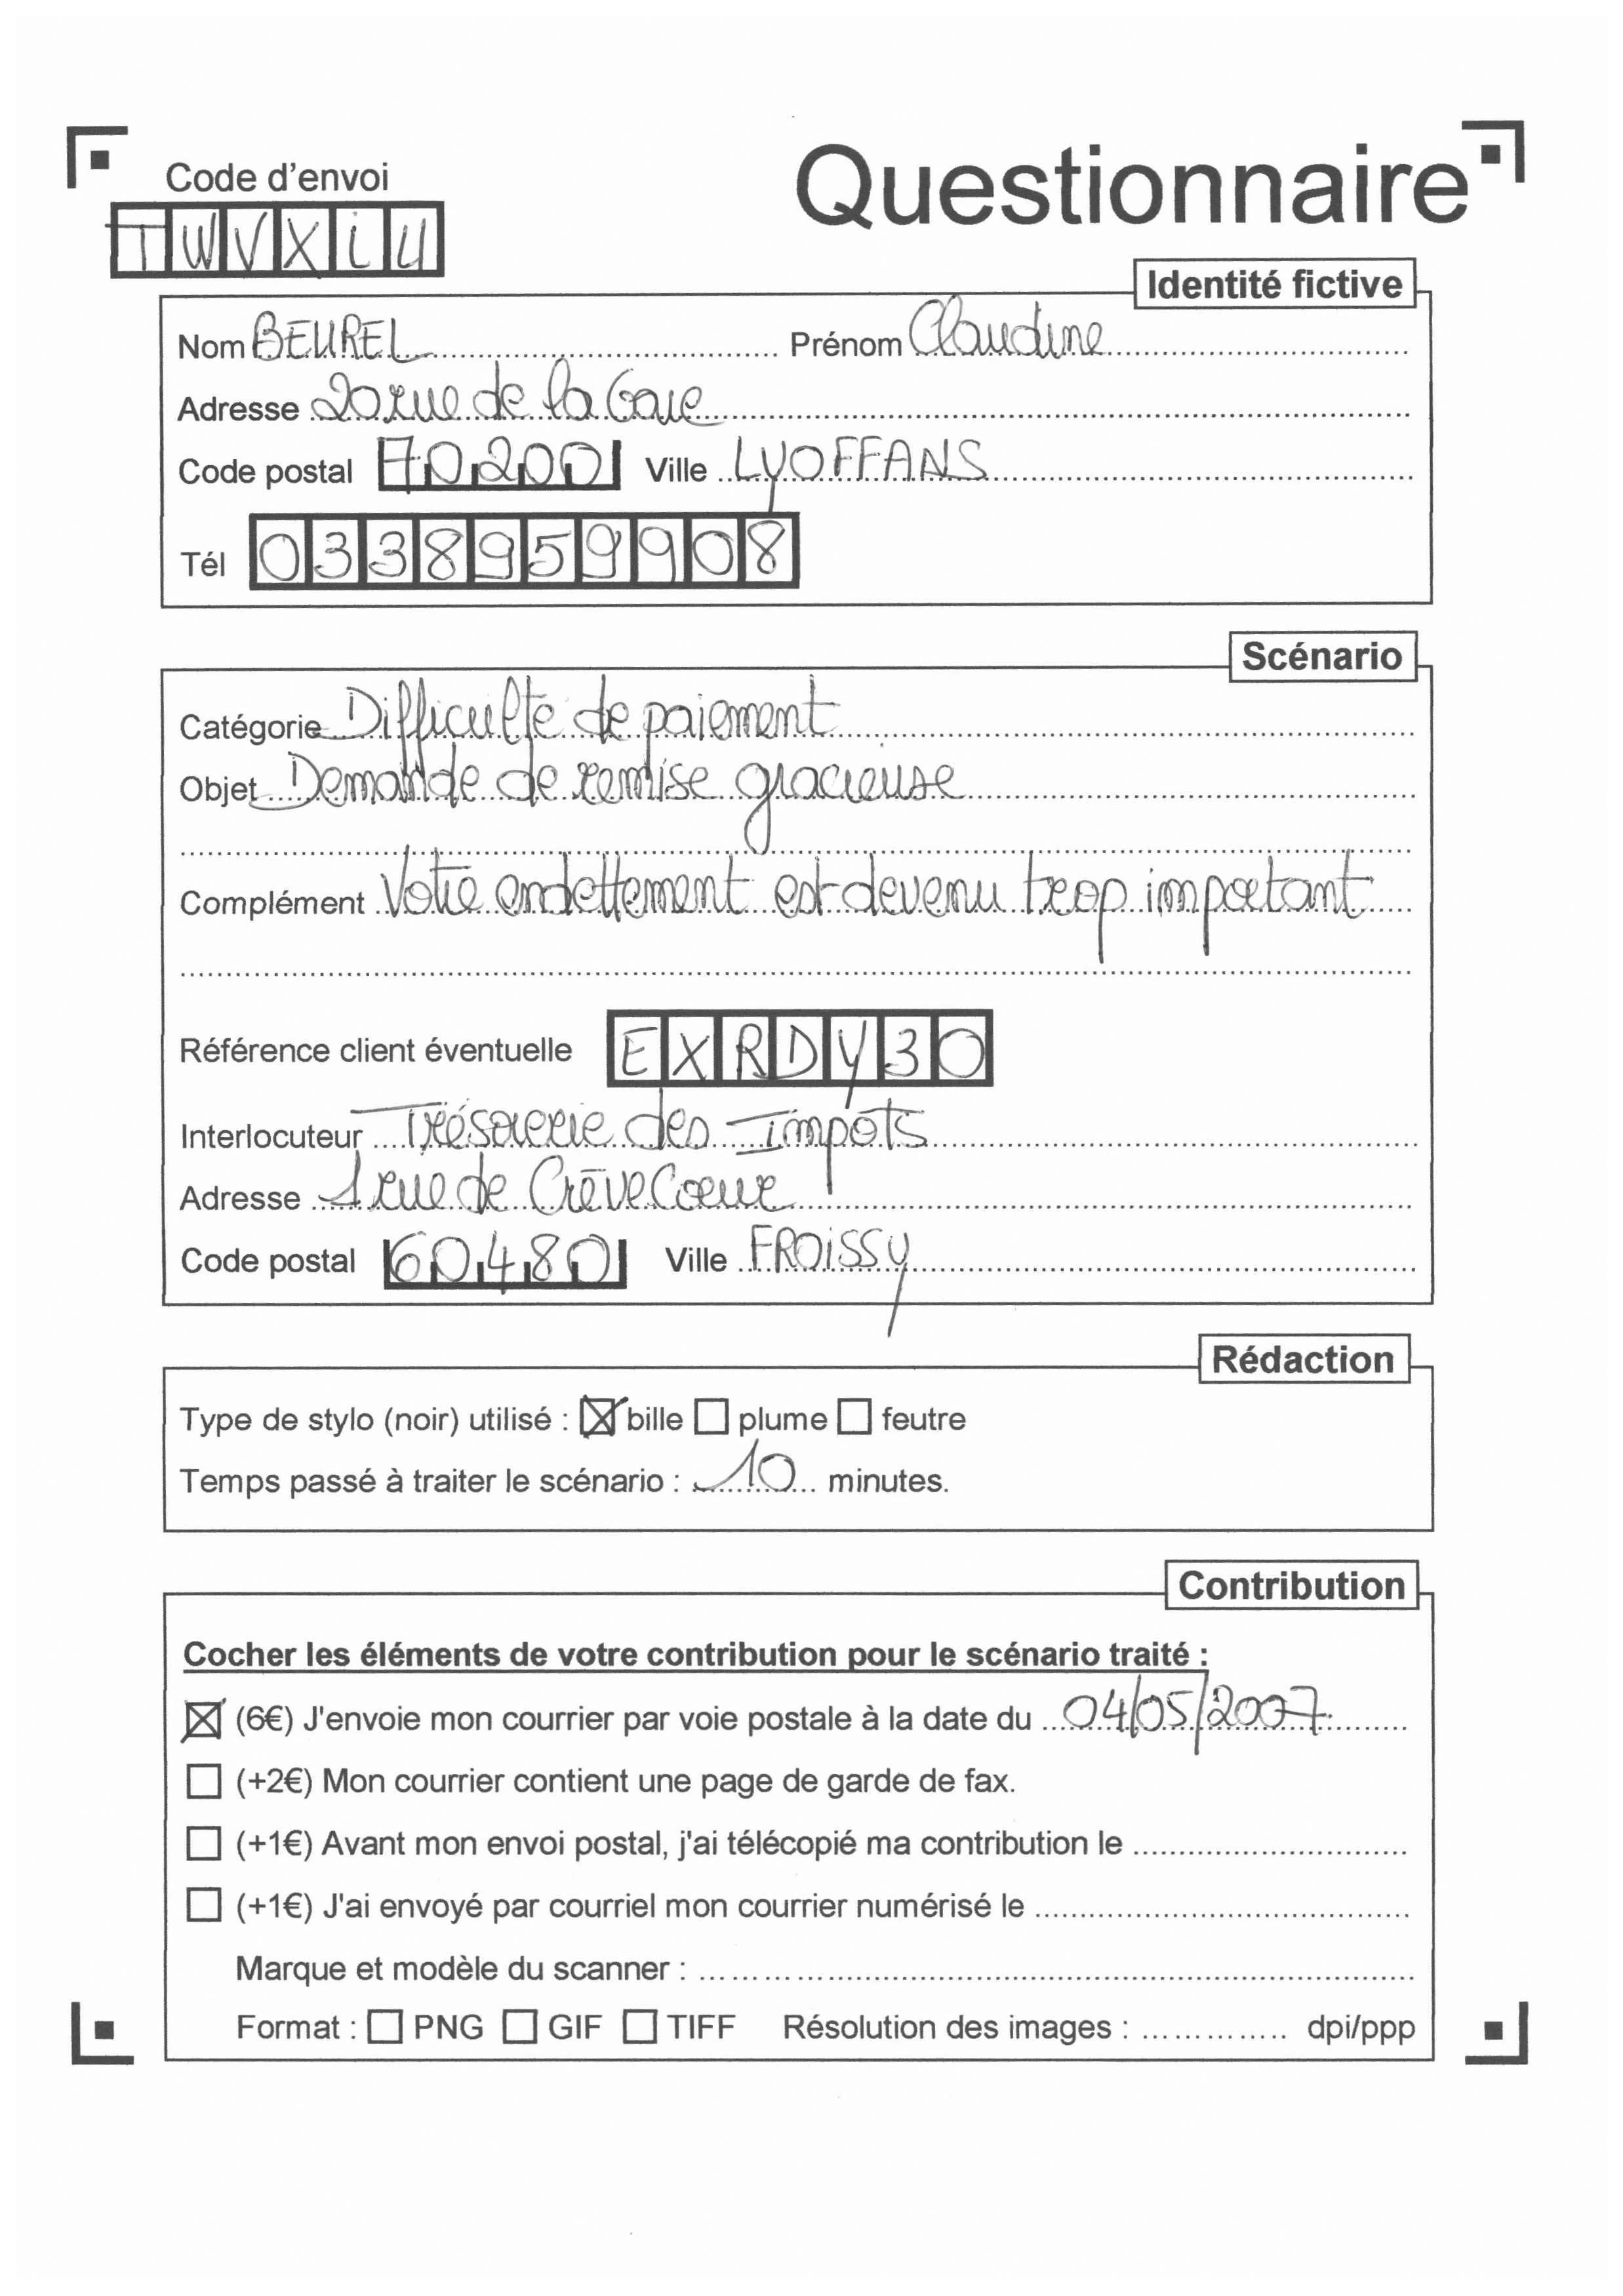 Code d'envoi
Questionnaire
TWVXiU
Identité fictive
Nom BEUREL Prénom Claudine
Adresse 20 rue de la Gare
Code postal 70200 Ville LYOFFANS
Tél 0338959908
Scénario
Catégorie Difficulté de paiement
Objet Demande de remise gracieuse
Complément Votre endettement est devenu trop important
Référence client éventuelle EXRDY30
Interlocuteur Trésorerie des Impôts
Adresse 1 rue de CrèveCoeur
Code postal 60480 Ville FROiSSY
Rédaction
Type de stylo (noir) utilisé : ☒ bille ☐ plume ☐ feutre
Temps passé à traiter le scénario : 10 minutes.
Contribution
Cocher les éléments de votre contribution pour le scénario traité :
☒ (6€) J'envoie mon courrier par voie postale à la date du 04/05/2007
☐ (+2€) Mon courrier contient une page de garde de fax.
☐ (+1€) Avant mon envoi postal, j'ai télécopié ma contribution le
☐ (+1€) J'ai envoyé par courriel mon courrier numérisé le
Marque et modèle du scanner :
Format : ☐ PNG ☐ GIF ☐ TIFF Résolution des images : dpi/ppp